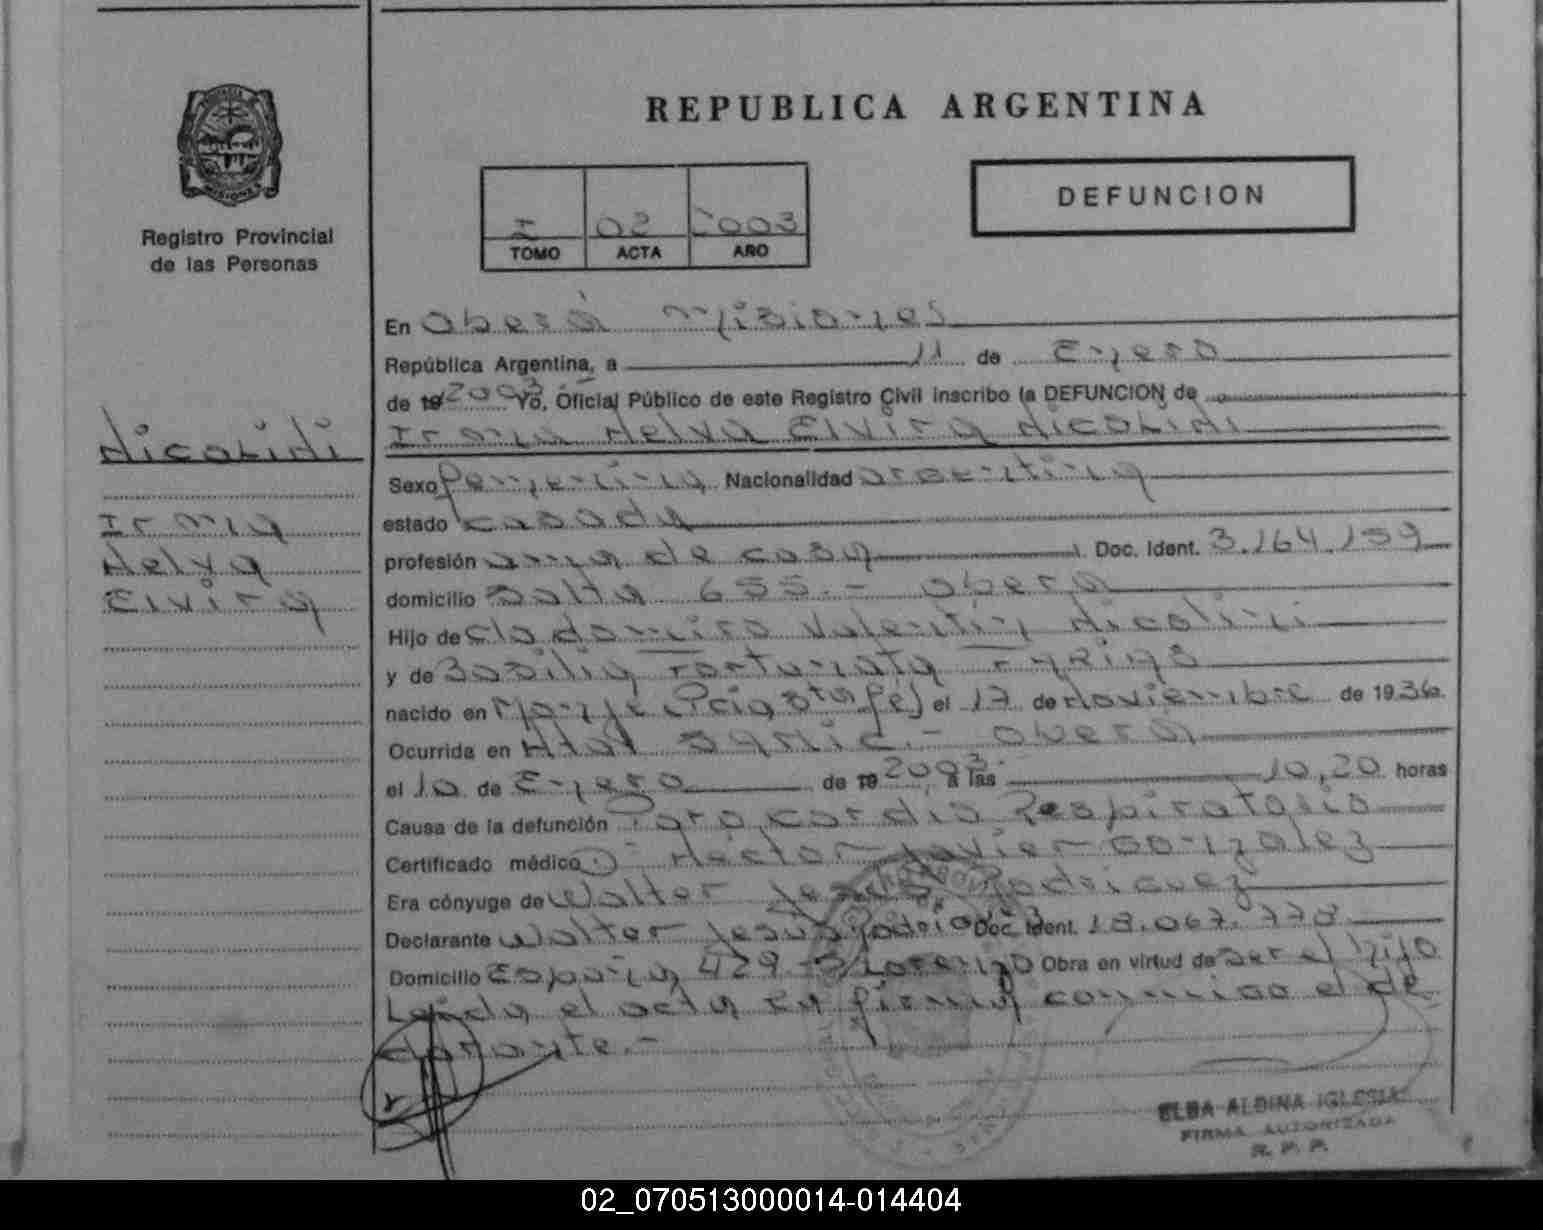 REPUBLICA ARGENTINA
PROVINCIA
MISIONES
Registro Provincial
de las Personas
I 02 2003
TOMO ACTA AÑO
DEFUNCION
En Oberá Misiones
República Argentina, a 11 de Enero
de 19 2003.- Yo, Oficial Público de este Registro Civil inscribo la DEFUNCION de
Irma Nelva Elvira Nicolini
Nicolini
Irma
Nelva
Elvira
Sexo femenino Nacionalidad argentina
estado casada
profesión ama de casa Doc. Ident. 3.164.159
domicilio Salta 655.- Oberá
Hijo de Clodomiro Valentín Nicolini
y de Basilia Fortunata
nacido en Monje (Pcia Sta fe) el 17 de Noviembre de 1936.
Ocurrida en .- Oberá
el 10 de Enero de 19 2003. a las 10,20 horas
Causa de la defunción Paro cardio Respiratorio
Certificado médico Héctor Javier Gonzalez
Era cónyuge de Walter Jesús Rodriguez
Declarante Walter Jesús Doc. Ident. 18.067.778
Domicilio España 429 - S/Lorenzo Obra en virtud de ser el hijo
Leída el acta la firma conmigo el de
clarante.-
ELBA ALDINA IGLESIA
FIRMA AUTORIZADA
R. P. P.
02_070513000014-014404